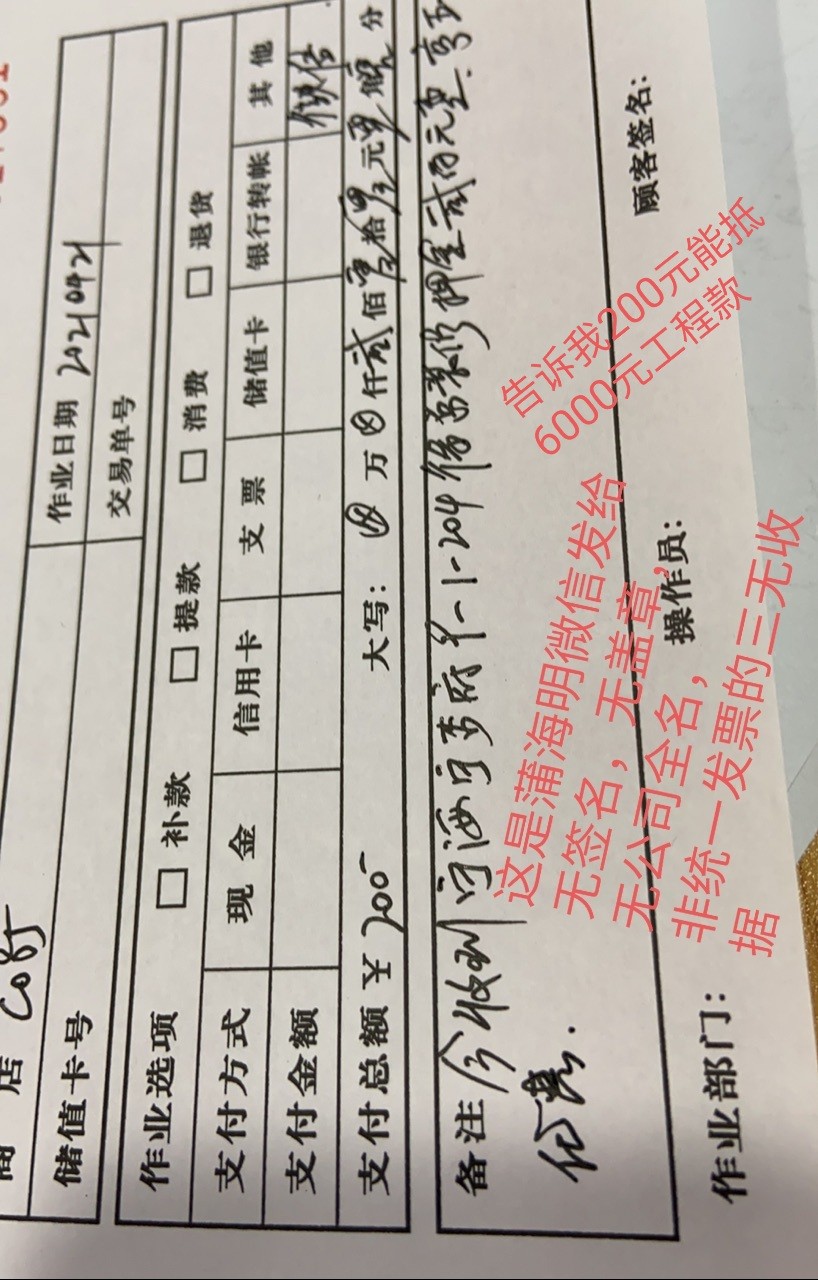 店 C085
储值卡号
作业日期 20210421
交易单号
作业选项 □ 补款 □ 提款 □ 消费 □ 退货
支付方式 现金 信用卡 支票 储值卡 银行转帐 其他
支付金额 微信
支付总额 ¥200- 大写: ⊗ 万 ⊗ 仟 贰 佰 零 拾 零 元 零 角 分
备注 今收到 宁海宁李府 9-1-204 修 装修押金 贰佰元
作业部门: 操作员: 顾客签名:
这是蒲海明微信发给
无签名,无盖章,
无公司全名,
非统一发票的三无收
据
告诉我200元能抵
6000元工程款